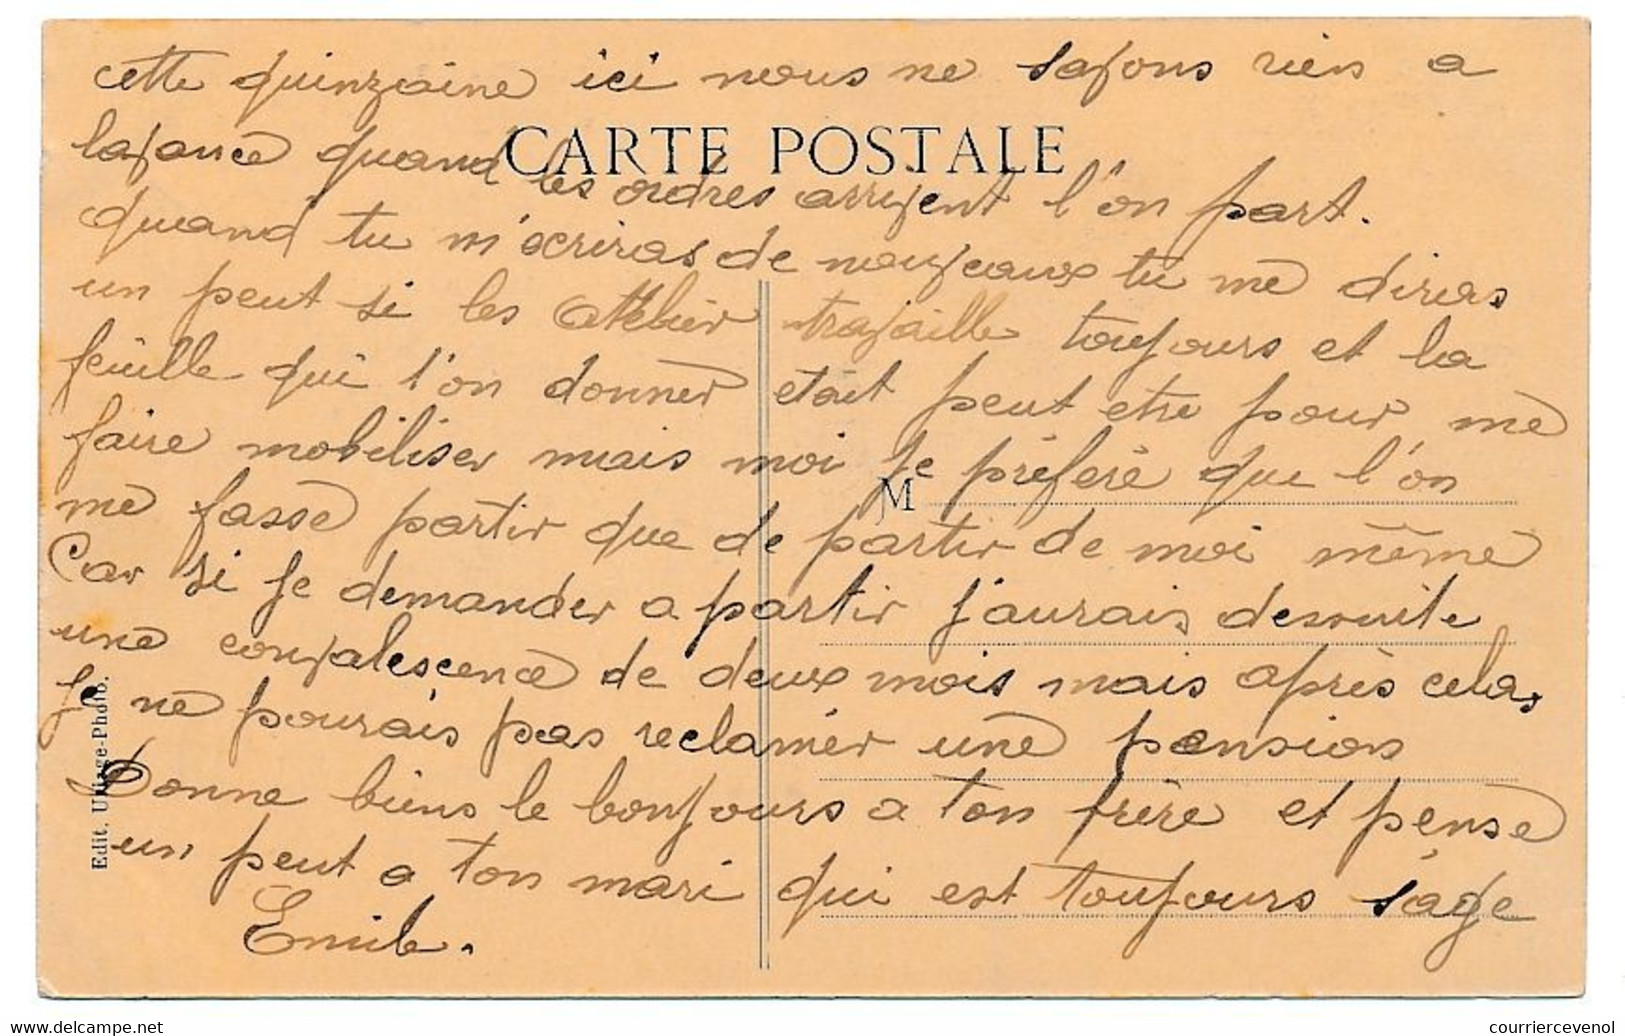 cette quinzaine ici nous ne safons rien a
lafance quand les ordres arrifent l'on part.
CARTE POSTALE
quand tu m'ecriras de noufeaux tu me diras
un peut si les attelier trafaille toujours et la
feuille qui l'on donner etait peut etre pour me
faire mobiliser mais moi je préfère que l'on
M
me fasse partir que de partir de moi même
Car si je demander a partir j'aurais dessuite
une confalescence de deux mois mais après cela
je ne pourais pas reclamér une pension
Donne biens le bonjours a ton frère et pense
un peut a ton mari qui est toujours sage
Emile.
Edit. Umage-Photo.
www.delcampe.net
courriercevenol